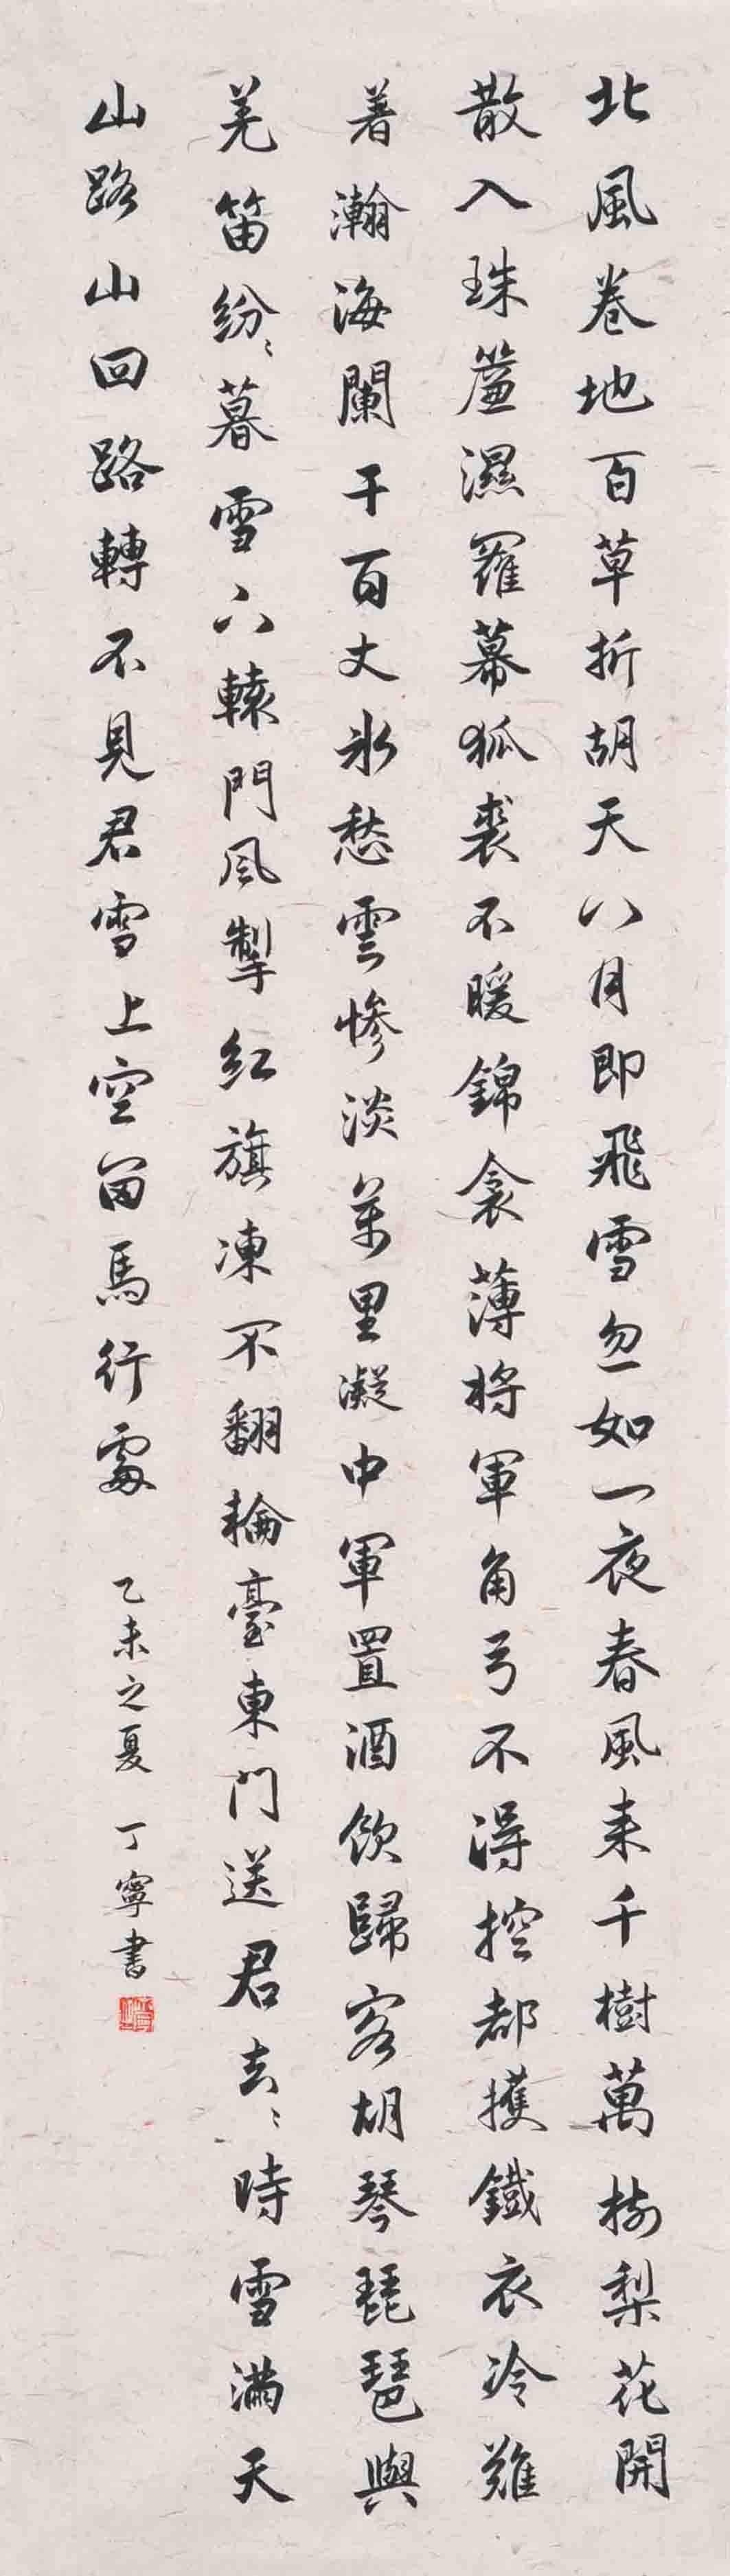 北風卷地百草折胡天八月即飛雪忽如一夜春風来千樹萬樹梨花開
散入珠簾濕羅幕狐裘不暖錦衾薄將軍角弓不得控都擭鐵衣冷難
著瀚海闌干百丈冰愁雲慘淡萬里凝中軍置酒飲歸客胡琴琵琶與
羌笛紛〻暮雪下轅門風掣紅旗凍不翻輪臺東門送君去〻時雪滿天
山路山回路轉不見君雪上空留馬行處 乙未之夏 丁寧書